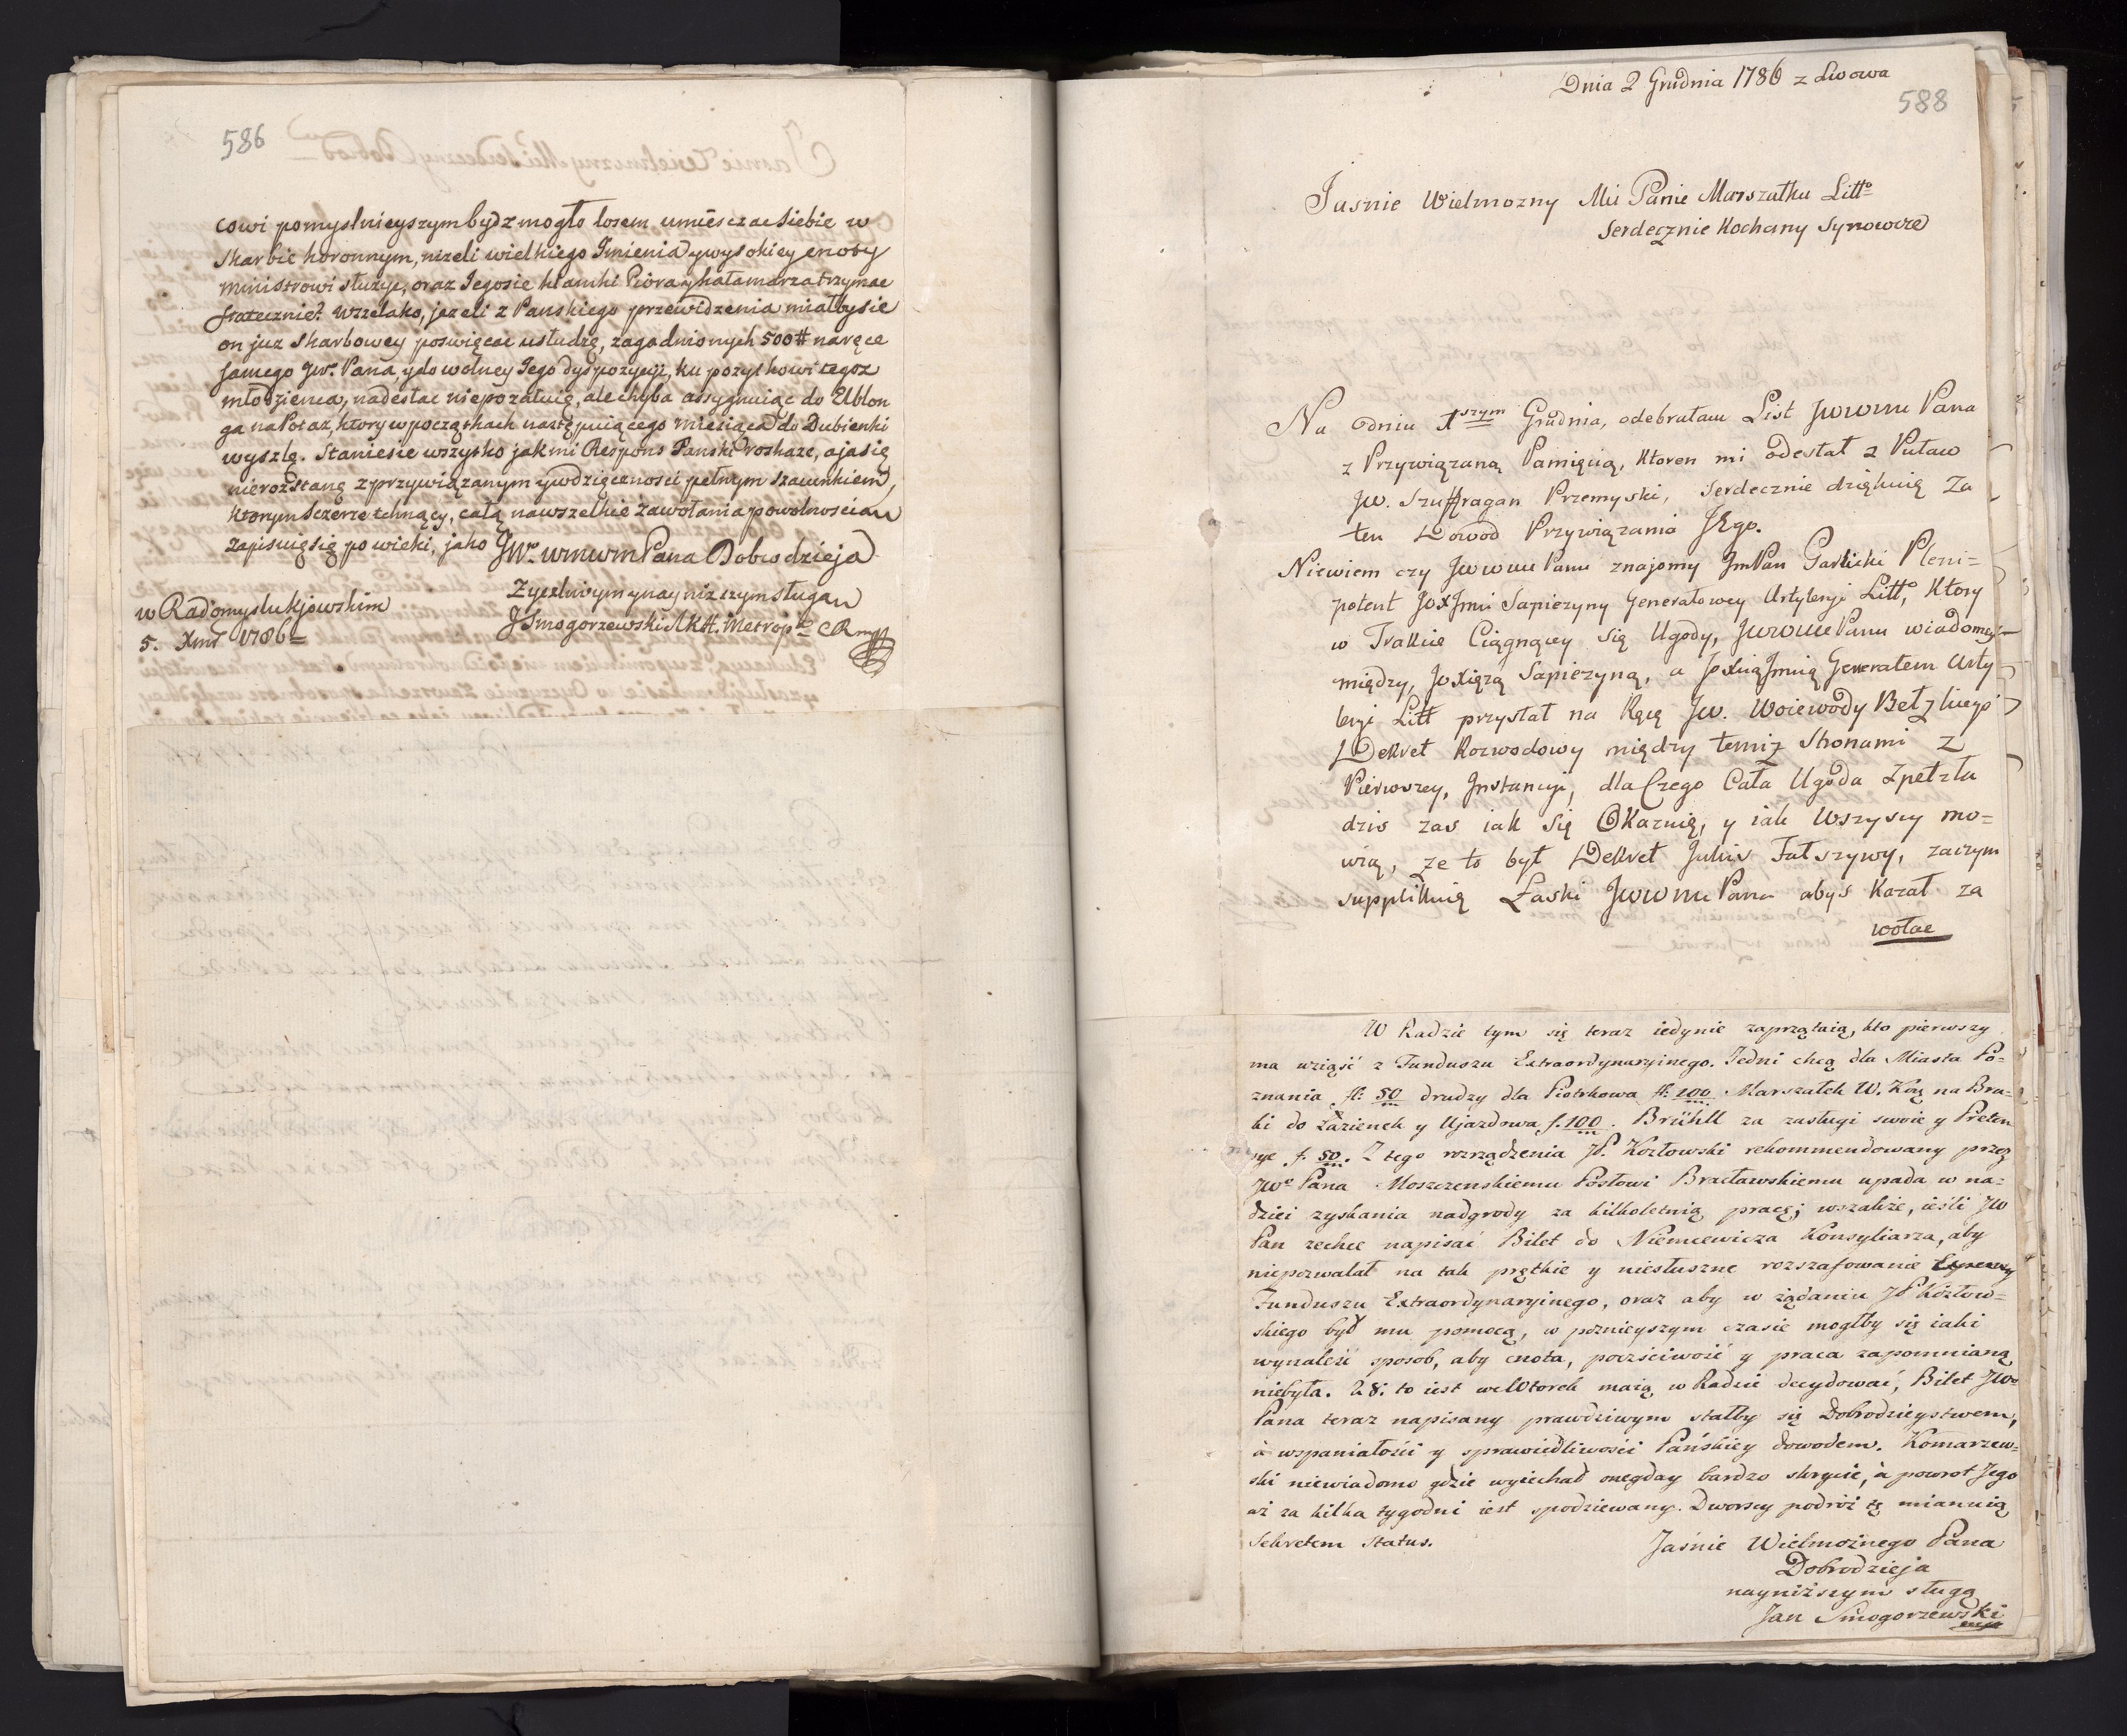 586
cowi pomyslnieyszym bydz mogło losem umiesczac siebie w
skarbie koronnym, nizeli wielkiego Imienia y wysokiey cnoty
ministrowi służyc, oraz Jegosie klamki Pióra y kałamarza trzymac
statecznie? Wszelako, jezeli z Panskiego przewidzenia miałby sie
on juz skarbowey poswięcac usłudze, zagadnionych 500# na ręce
samego Jwo. Pana, y do wolney Jego dyspozycyi, ku pozytkowi tegoz
młodzienca, nadesłac nie pozałuię, ale chyba assygnuiąc do Elblon
ga na Potaz, ktory w początkach następuiącego miesiąca do Dubienki
wyszlę. Staniesie wszystko jak mi Respons Panski roskaze, a ja się
nierozstanę z przywiązanym y wdzięcznosci pełnym szacunkiem,
ktorym sczerze tchnący, całą na wszelkie zawołania powolnoscian
zapisuię się po wieki, jako JWo. wmwm Pana Dobrodzieja
Zyczliwym y nayniższym sługan
w Radomyslu kijowskim J Smogorzewski AKH. Metrop
5. Xbris 1786
Dnia 2 Grudnia 1786 z Lwowa
588
Jasnie Wielmozny Mci Panie Marszałku Litto
Serdecznie Kochany Synowcze
Na dniu 1szym Grudnia, odebrałam List JWWMM Pana
z Przywiązaną Pamięcią, Ktoren mi odesłał z Puław
JW. Szuffragan Przemyski, Serdecznie dziękuię Za
ten Dowod Przywiązania JEgo.
Niewiem czy JWWMM Panu znajomy JmPan Garlicki Pleni=
potent JOXJmci Sapiezyny Generałowey Artyleryi Litto, Ktory
w Trakcie Ciągnącey się Ugody, JWWMM Panu wiadomey
między, JOXięzą Sapiezyną, a JOXięJmcią Generałem Arty
leryi Litt przysłał na Ręcę JW. Woiewody Bełzkiego
Dekret Rozwodowy między temiz Stronami z
Pierwszey, Instancyi, dla Czego Cała Ugoda Zpełzła
dzis zas iak się Okazuię, y iak Wszyscy mo=
wią, ze to był Dekret Jakis Fałszywy, zaczym
supplikuię Łaski JWWMM Pana abys Kazał za
wołac
W Radzie tym się teraz iedynie zaprzątaią, kto pierwszy
ma wziąść z Funduszu Extraordynaryinego. Jedni chcą dla Miasta Po=
znania fl: 50 drudzy dla Piotrkowa fl: 100 Marszałek W. Kor. na Bru=
ki do Łazienek y Ujazdowa f. 100. Brühll za zasługi swoie y Preten
sye f. 50. Z tego rozrządzenia JP. Kozłowski rekommendowany przez
JWo Pana Moszczenskiemu Posłowi Bracławskiemu upada w na=
dziei zyskania nadgrody za kilkoletnią pracę; wszakże, ieśli JW
Pan zechce napisać Bilet do Niemcewicza Konsyliarza, aby
niepozwalał na tak prętkie y niesłuszne rozszafowanie
Funduszu Extraordynaryinego, oraz aby w żądaniu JP Kozłow=
skiego był mu pomocą, w poznieyszym czasie mogłby się iaki
wynaleźć sposob, aby cnota, poczściwość y praca zapomnianą
niebyła. 28: to iest we Wtorek maią w Radzie decydować, Bilet JWo
Pana teraz napisany prawdziwym stałby się Dobrodzieystwem,
à wspaniałości y sprawiedliwości Pańskiey dowodem. Komarzew=
ski niewiadomo gdzie wyiechał onegday bardzo skrycie, à powrot Jego
aż za kilka tygodni iest spodziewany. Dworscy podróż tę mianuią
Sekretem Status.
Jaśnie Wielmożnego Pana
Dobrodzieja
nayniższym sługą
Jan Smogorzewski
mp